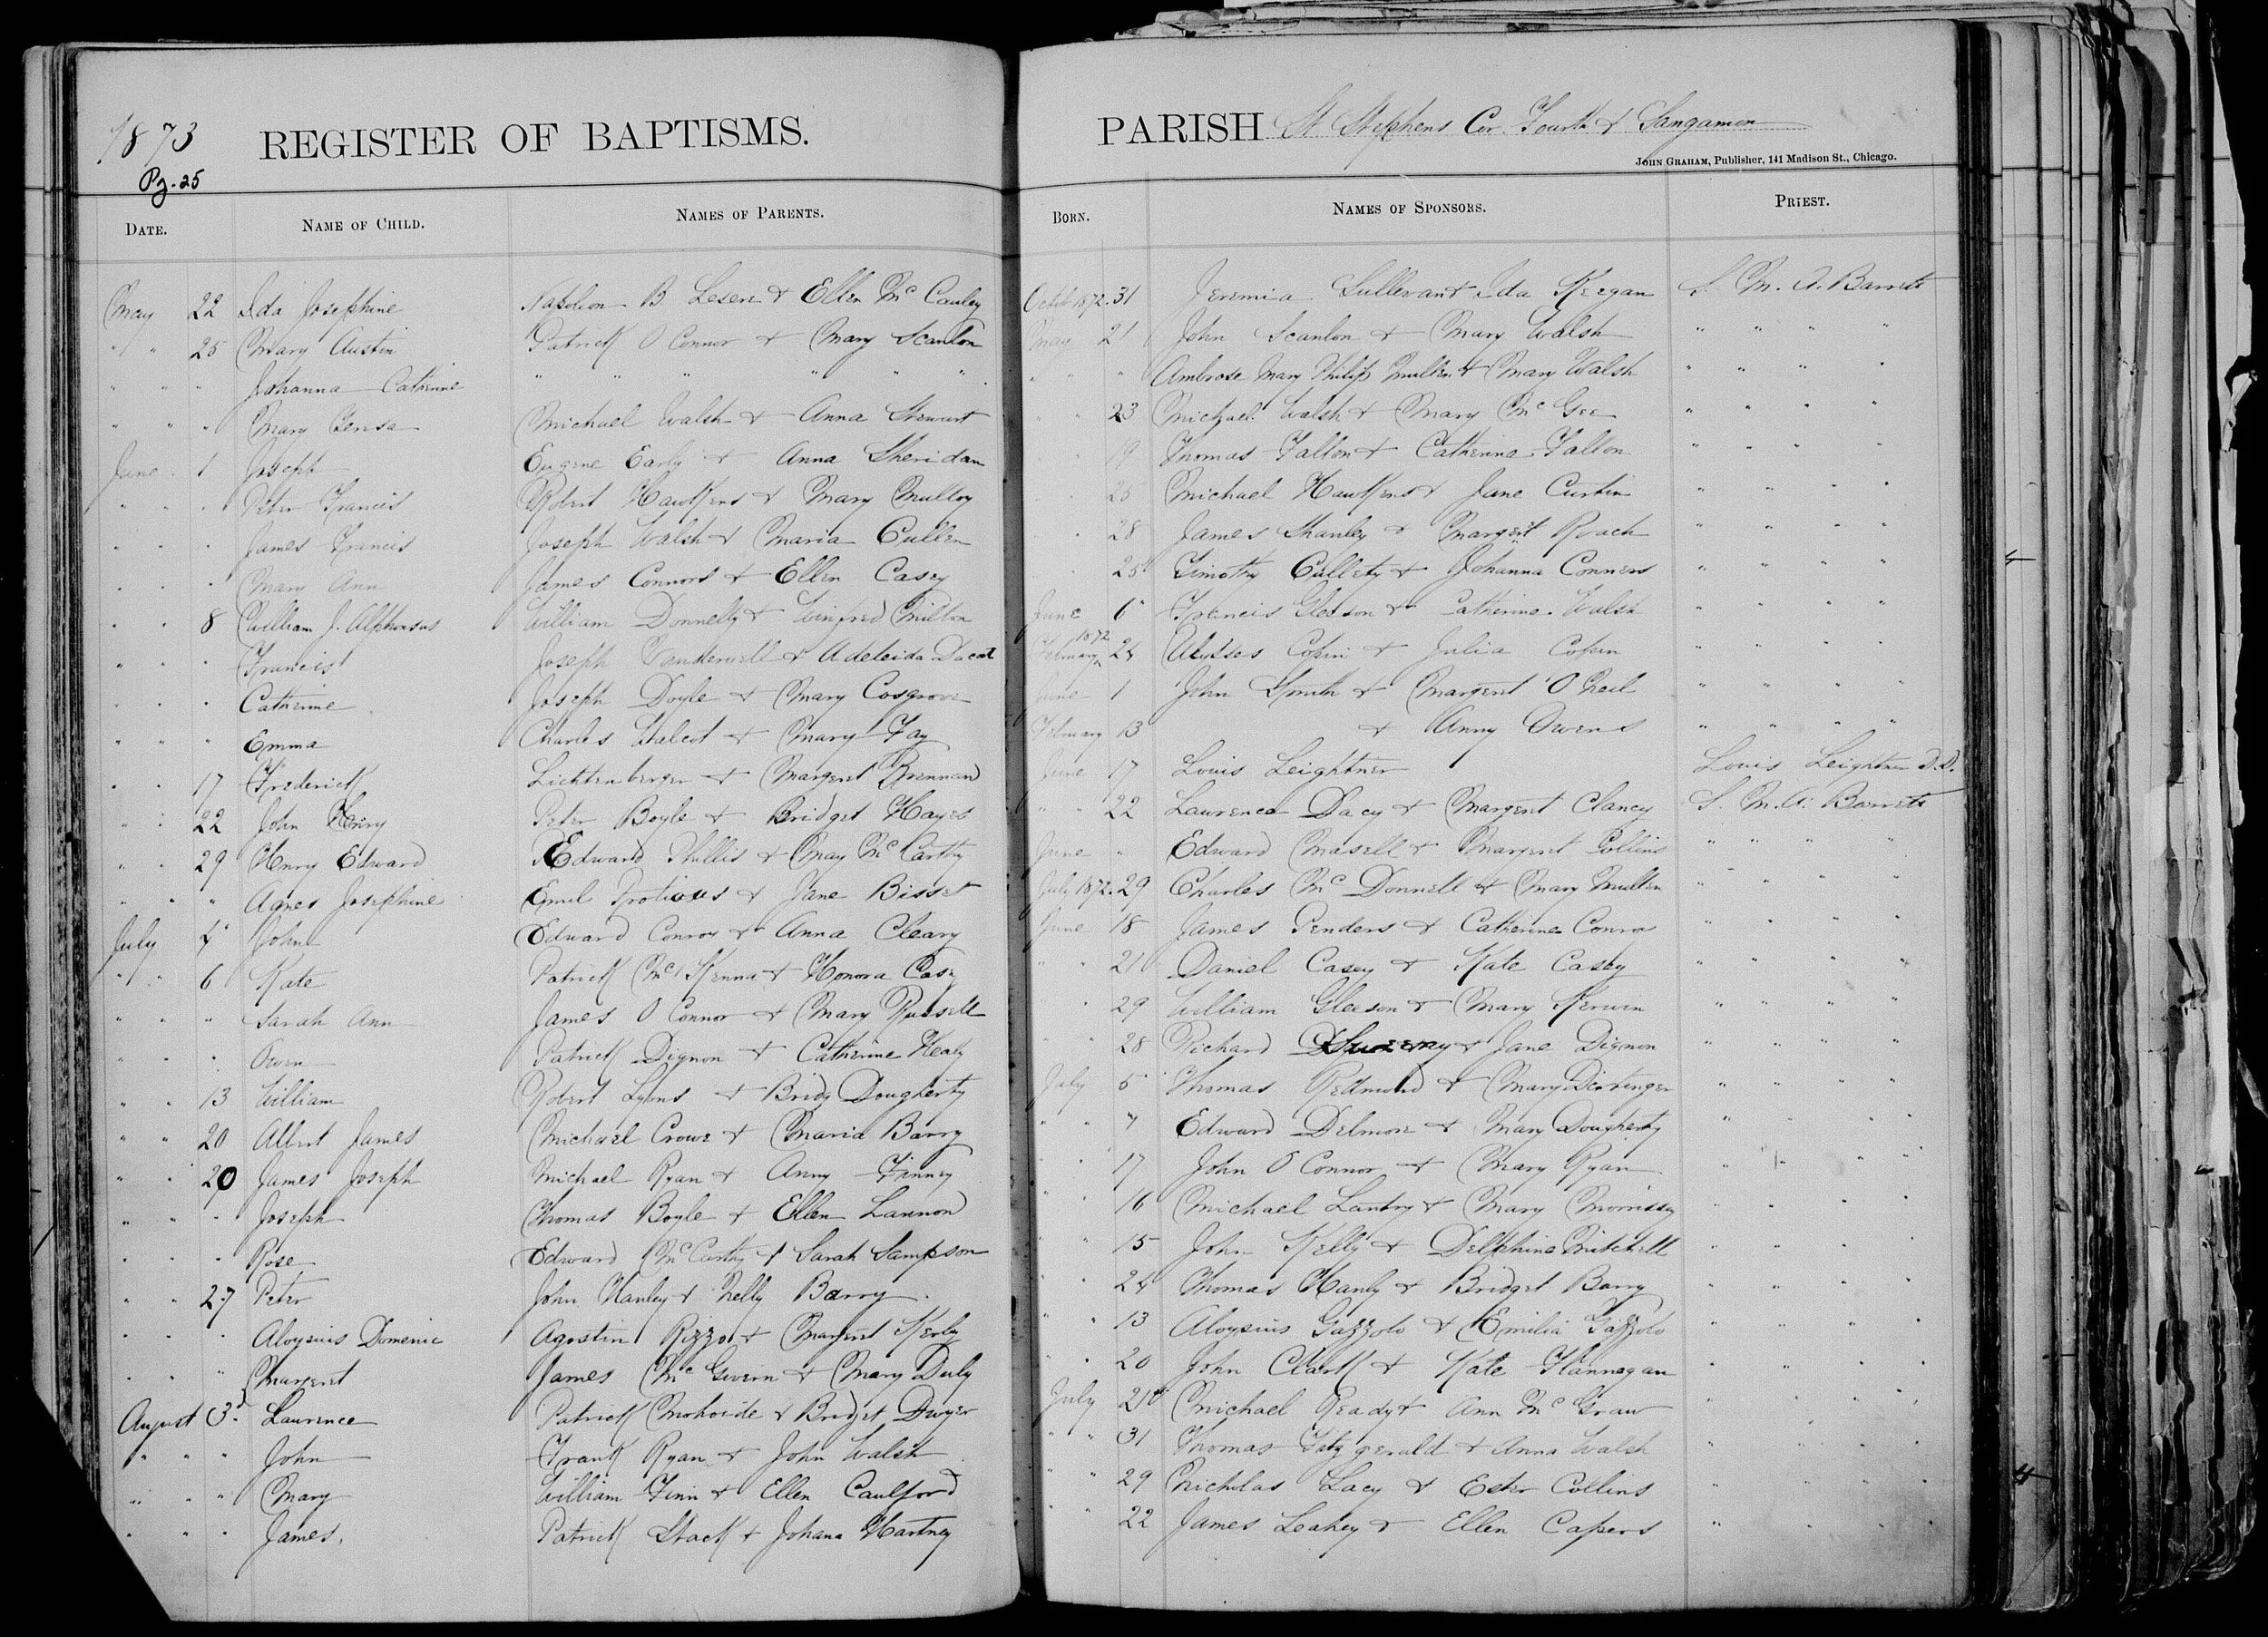 1873 REGISTER OF BAPTISMS.
Pg. 25
DATE. NAME OF CHILD. NAMES OF PARENTS.
May 22 Ida Josephine Napoleon B Lesere & Ellen Mc Cauley
" " 25 Mary Austin Patrick O Connor & Mary Scanlon
" " " Johanna Catherine " " " " " "
" " " Mary Teresa Michael Walsh & Anna Stewart
June 1 Joseph Eugene Early & Anna Sheridan
" " " Peter Francis Robert Hawkens & Mary Mulloy
" " " James Francis Joseph Walsh & Maria Cullen
" " " Mary Ann James Connors & Ellen Casey
" " 8 William J. Alphonsus William Donnelly & Winfred Milton
" " " Francis Joseph & Adeleida
" " " Catherine Joseph Doyle & Mary Cosgrove
" " " Emma Charles & Mary Fay
" " 17 Frederick Lichtenberger & Margent Brennan
" " 22 John Henry Peter Boyle & Bridget Hayes
" " 29 Henry Edward Edward Phillis & May Mc Carthy
" " " Agnes Josephine Emil & Jane Bisset
July 4 John Edward Conroy & Anna Cleary
" " 6 Kate Patrick Mc Kenna & Honora Casy
" " " Sarah Ann James O Connor & Mary Russell
" " " Owen Patrick Dignon & Catherine Healy
" " 13 William Robert Lyons & Bridg Dougherty
" " 20 Albert James Michael Crowe & Maria Barry
" " 20 James Joseph Michael Ryan & Anny Finney
" " " Joseph Thomas Boyle & Ellen Lannon
" " " Rose Edward McCarthy & Sarah Sampson
" " 27 Peter John Hanley & Nelly Barry
" " " Aloysius Domenic Agostin Rizzo & Margent Kerly
" " " Margent James Mc Govern & Mary Duly
August 3d. Laurence Patrick & Bridget Dwyer
" " " John Frank Ryan & John Walsh
" " " Mary William Finn & Ellen Caulford
" " " James. Patrick Stack & Johana Hartney
PARISH St Stephens Cor. Fourth & Sangamon
JOHN GRAHAM, Publisher, 141 Madison St., Chicago.
BORN. NAMES OF SPONSORS. PRIEST.
Octob 1872. 31 Jeremia Sullevan & Ida Keegan S. M. A. Barrett
May 21 John Scanlon & Mary Walsh " " " "
" " " Ambrose Mary Philip Mullen & Mary Walsh " " " "
" " 23 Michael Walsh & Mary Mc Gee " " " "
" " 19 Thomas Fallon & Catherine Fallon " " " "
" " 25 Michael Hawkens & Jane Curtin " " " "
" 28 James Shanley & Margent Roach " " " "
" 25 Timothy Cullety & Johanna Conners " " " "
June 6 Francis Gleeson & Catherine Walsh " " " "
February 1872 24 Ulysses Copin & Julia Copin " " " "
June 1 John Smith & Margent O Neil " " " "
February 13 & Anny Owens " " " "
June 17 Louis Leightner Louis Leightner D.D.
" " 22 Lawrence Dacy & Margent Clancy S. M. A. Barrett
June " Edward Masell & Margent Collins " " " "
July 1872. 29 Charles Mc Donnell & Mary Mullen " " " "
June 18 James Penders & Catherine Conroy " " " "
" " 21 Daniel Casey & Kate Casey " " " "
" " 29 William Gleeson & Mary Kerwin " " " "
" " 28 Richard Sweeney & Jane Dignon " " " "
July 5 Thomas Redmond & Mary " " " "
" " 7 Edward Delmore & Mary Dougherty " " " "
" " 17 John O Connor & Mary Ryan " " " "
" " 16 Michael Lantry & Mary Morrissy " " " "
" " 15 John Kelly & Delphine Mitchell " " " "
" " 24 Thomas Hanly & Bridget Barry " " " "
" " 13 Aloysius Gazzolo & Emilia Gazzolo " " " "
" " 20 John Clark & Kate Flannegan " " " "
July 21 Michael Ready & Ann Mc Graw " " " "
" " 31 Thomas Fitzgerald & Anna Walsh " " " "
" " 29 Nicholas Lacy & Ester Collins " " " "
" " 22 James Leahey & Ellen Capers " " " "